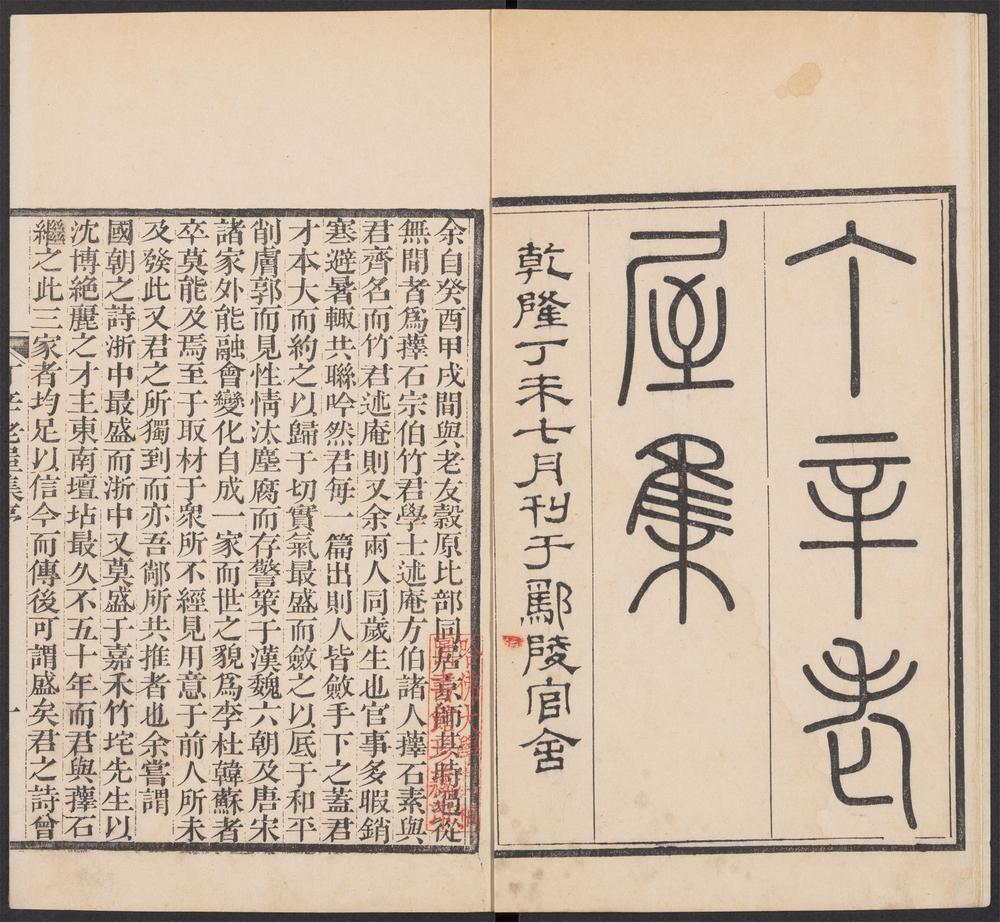 丁辛老
屋集
乾隆丁未七月刊于鄢陵官舍
余自癸酉甲戌間與老友穀原比部同居京師其時過從
無間者爲蘀石宗伯竹君學士述庵方伯諸人蘀石素與
君齊名而竹君述庵則又余兩人同歲生也官事多暇銷
寒避暑輙共聯吟然君每一篇出則人皆斂手下之蓋君
才本大而約之以歸于切實氣最盛而斂之以底于和平
削膚郭而見性情汰塵腐而存警策于漢魏六朝及唐宋
諸家外能融會變化自成一家而世之貌爲李杜韓蘇者
卒莫能及焉至于取材于衆所不經見用意于前人所未
及發此又君之所獨到而亦吾鄰所共推者也余嘗謂
國朝之詩浙中最盛而浙中又莫盛于嘉禾竹垞先生以
沈博絶麗之才主東南壇坫最久不五十年而君與蘀石
繼之此三家者均足以信今而傳後可謂盛矣君之詩曾
丁辛老屋集序
一
哈佛大學
圖書館珍藏